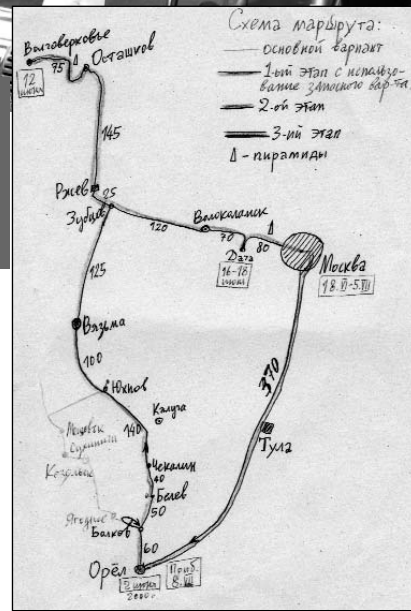 Схема маршрута:
основной вариант
1-ый этап с использо-
вание запасного вар-та
2-ой этап
3-ий этап
Δ - пирамиды
Волговерховье
Осташков
95
12
июня
145
Ржев
25
Зубцов
120
Волоколамск
70
80
Дата
16-18
июня
Москва
18.VI-5.VII
125
Вязьма
100
Юхнов
Калуга
140
370
Тула
Сухиничи
Козельск
Чекалин
40
Белев
50
Болхов
60
Орёл
2 июня
2000г.
Приб.
8.VII